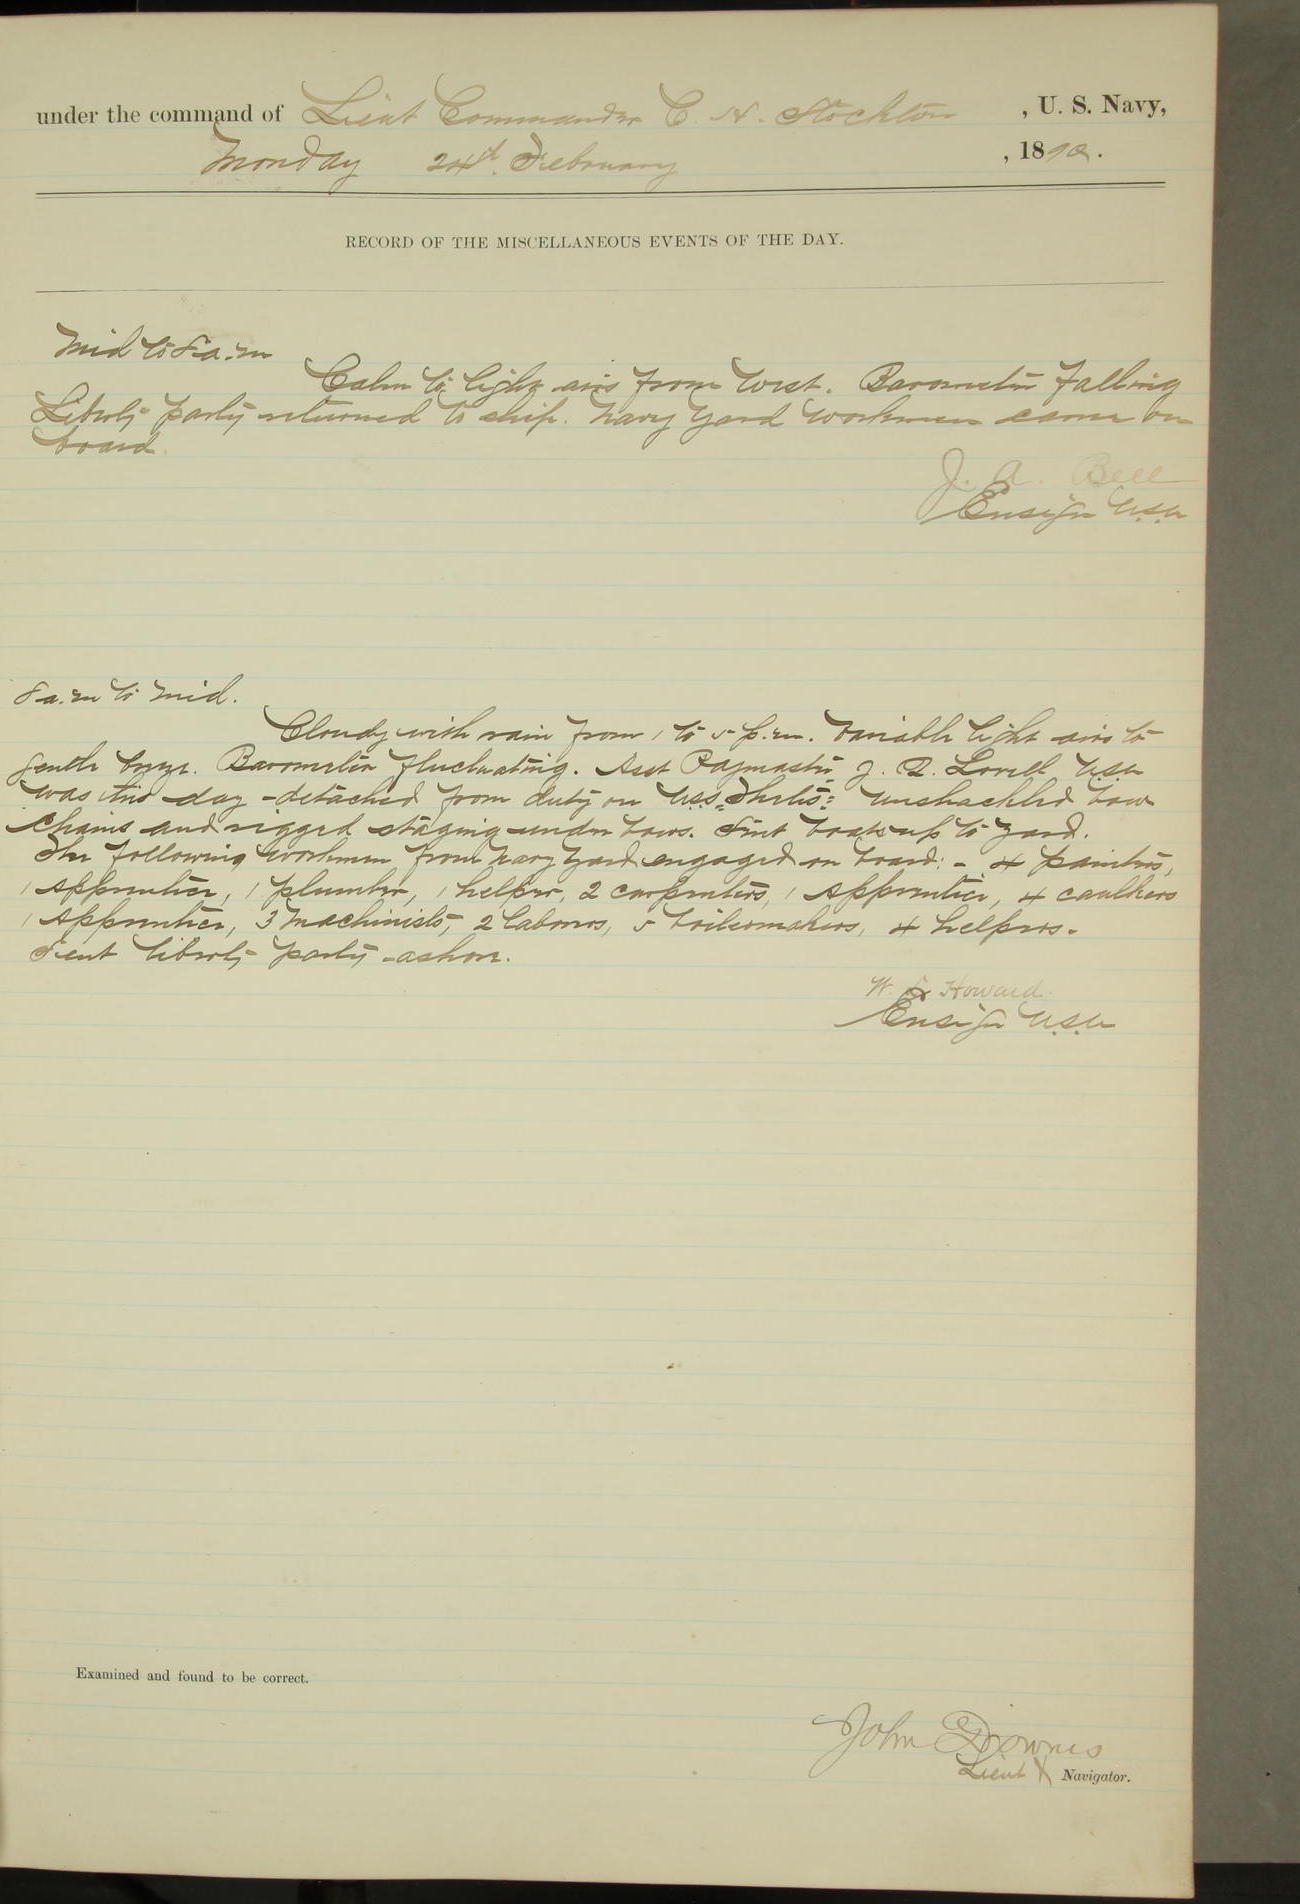 under the command of Lieut Commander C. H. Stockton, U. S. Navy,
Monday 24th. February, 1890.
RECORD OF THE MISCELLANEOUS EVENTS OF THE DAY.
Mid to 8 a.m
Calm to light airs from West. Barometer falling
Liberty party returned to ship. Navy Yard workmen came on
board
J. A. Bell
Ensign U.S.N
8 a.m to Mid.
Cloudy with rain from 1 to 5 p.m. Variable light airs to
gentle breeze. Barometer fluctuating. Asst Paymaster J. Q. Lovell U.S.N
was this day detached from duty on U.S.S. "Thetis": Unshackled bow
chains and rigged staging under bows. Sent boats up to Yard.
The following workmen from Navy Yard engaged on board: - 4 painters,
1 Apprentice, 1 plumber, 1 helper, 2 carpenters, 1 Apprentice, 4 caulkers
1 Apprentice, 3 Machinists, 2 laborers, 5 boilermakers, 4 helpers.
Sent liberty party ashore.
W. L Howard.
Ensign U.S.N
Examined and found to be correct.
John Downes
Lieut & Navigator.